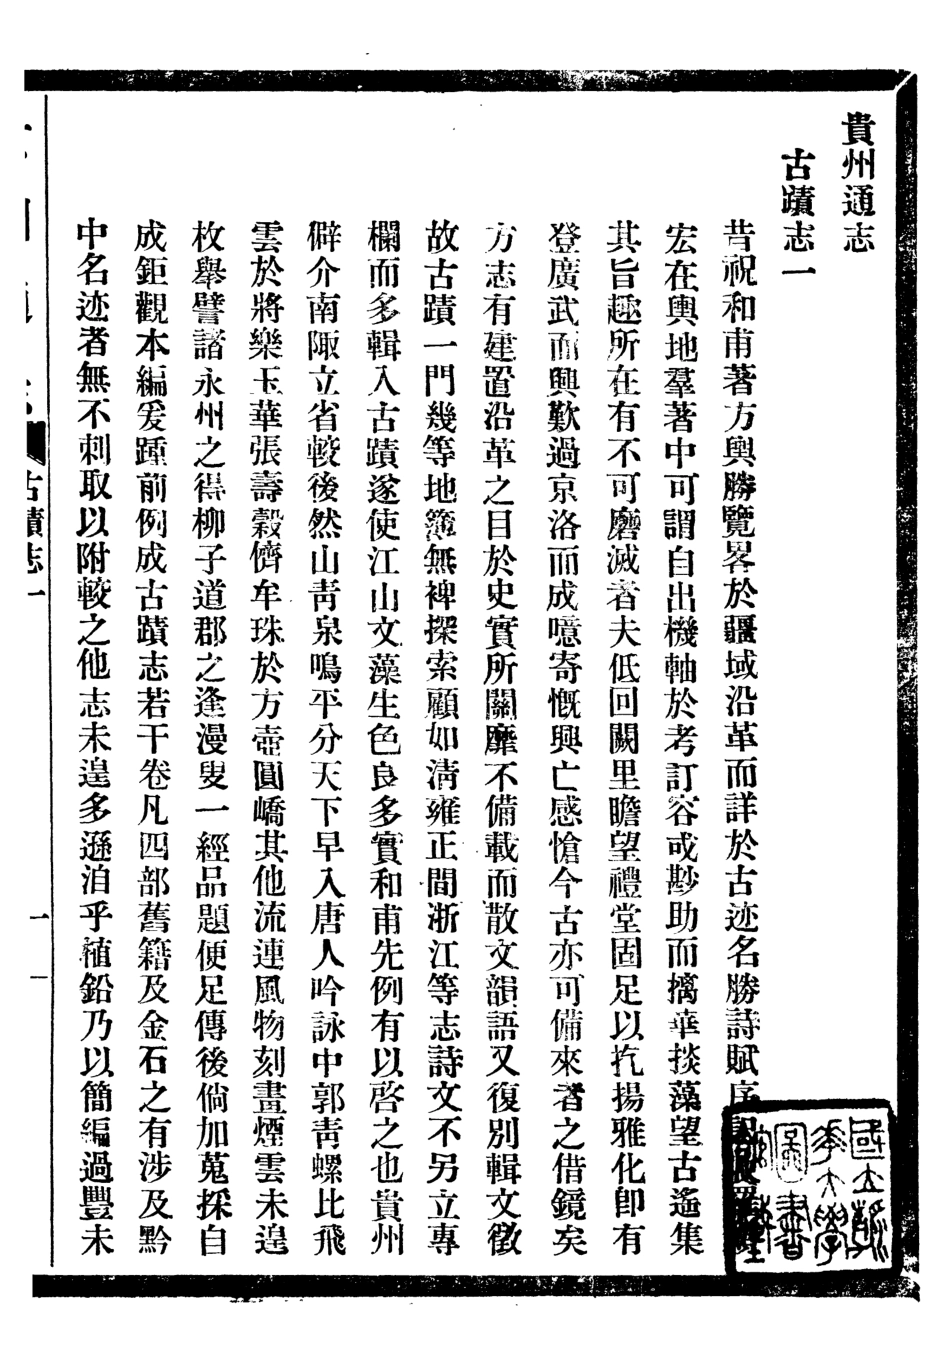 貴州通志
古蹟志一
昔祝和甫著方輿勝覽畧於疆域沿革而詳於古迹名勝詩賦序
宏在輿地羣著中可謂自出機軸於考訂容或尠助而摛華掞藻望古遙集
其旨趣所在有不可磨滅者夫低回闕里瞻望禮堂固足以扢揚雅化卽有
登廣武而興歎過京洛而成噫寄慨興亡感愴今古亦可備來者之借鏡矣
方志有建置沿革之目於史實所關靡不備載而散文韻語又復別輯文徵
故古蹟一門幾等地簿無裨探索顧如淸雍正間浙江等志詩文不另立專
欄而多輯入古蹟遂使江山文藻生色良多實和甫先例有以啓之也貴州
僻介南陬立省較後然山靑泉鳴平分天下早入唐人吟詠中郭靑螺比飛
雲於將樂玉華張壽穀儕牟珠於方壺圓嶠其他流連風物刻畫煙雲未遑
枚舉譬諸永州之得柳子道郡之逢漫叟一經品題便足傳後倘加蒐採自
成鉅觀本編爰踵前例成古蹟志若干卷凡四部舊籍及金石之有涉及黔
中名迹者無不刺取以附較之他志未遑多遜洎乎植鉛乃以簡編過豐未
古蹟志一
一
國立
大學
圖書